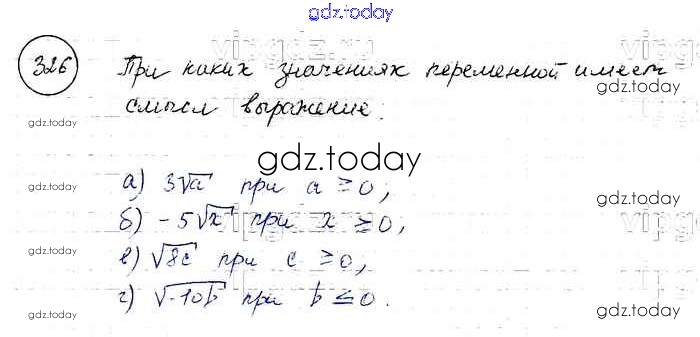 gdz.today
326 При каких значениях переменной имеет
смысл выражение:
gdz.today
а) 3√a при a ≥ 0;
б) -5√x при x ≥ 0,
в) √8c при c ≥ 0,
г) √-10b при b ≤ 0.
vipgdz.ru
gdz.today
gdz.today
gdz.today
gdz.today
gdz.today
gdz.today
gdz.today
gdz.today